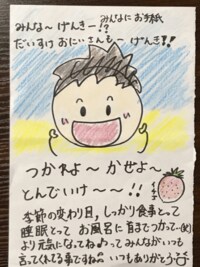 みんな～げんきー!?
みんなにお手紙
だいすけおにいさんもーげんき!!
つかれよ～かぜよ～
とんでいけ～～!!
イチゴ
季節の変わり目、しっかり食事とって
睡眠とってお風呂に肩までつかって…(略)
より元気になってね♪ってみんながいつも
言ってくれてる事ですね♪いつもありがとう